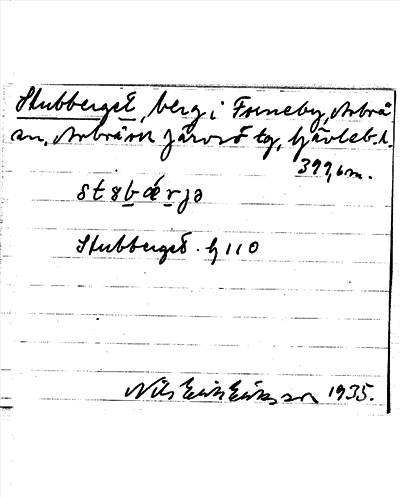 Stubberget, berg i Forneby, Arbrå
sn, Arbrå och Järvsö tg, Gävleb. l.
399,6 m.
stɞbærjə
Stubberget. G 110
Nils Erik Eriksson 1935.